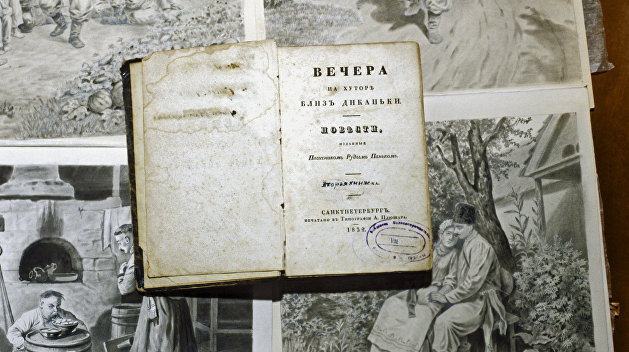 ВЕЧЕРА
НА ХУТОРѢ
БЛИЗЬ ДИКАНЬКИ.
ПОВѢСТИ,
ИЗДАННЫЯ
Пасичникомъ Рудымъ Панькомъ.
ВТОРАЯ КНИЖКА.
САНКТПЕТЕРБУРГЪ.
ПЕЧАТАНО ВЪ ТИПОГРАФІИ А. ПЛЮШАРА.
1832.